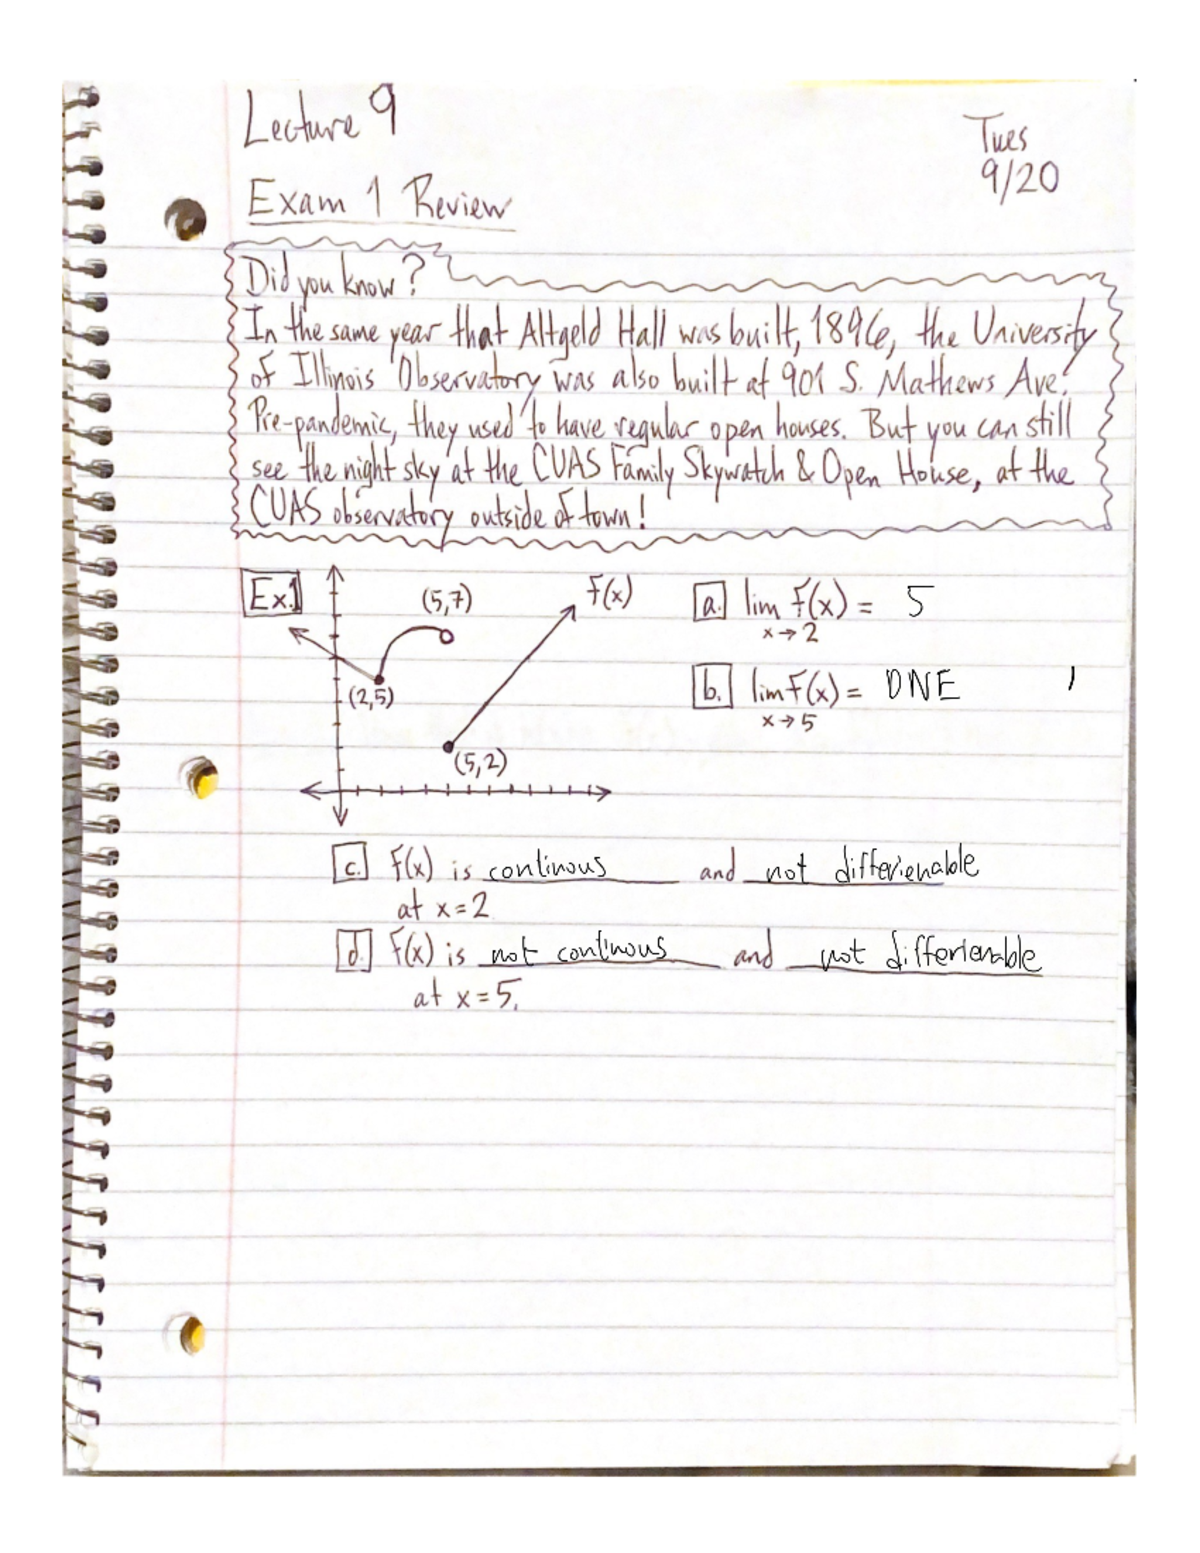 Lecture 9
Tues
9/20
Exam 1 Review
Did you know?
In the same year that Altgeld Hall was built, 1896, the University
of Illinois Observatory was also built at 901 S. Mathews Ave.
Pre-pandemic, they used to have regular open houses. But you can still
see the night sky at the CUAS Family Skywatch & Open House, at the
CUAS observatory outside of town!
Ex.1
(5,7)
f(x)
(2,5)
(5,2)
a. lim f(x) = 5
x→2
b. lim f(x) = DNE
x→5
c. f(x) is continous and not differienable
at x=2
d. f(x) is not continous and not differienable
at x=5.